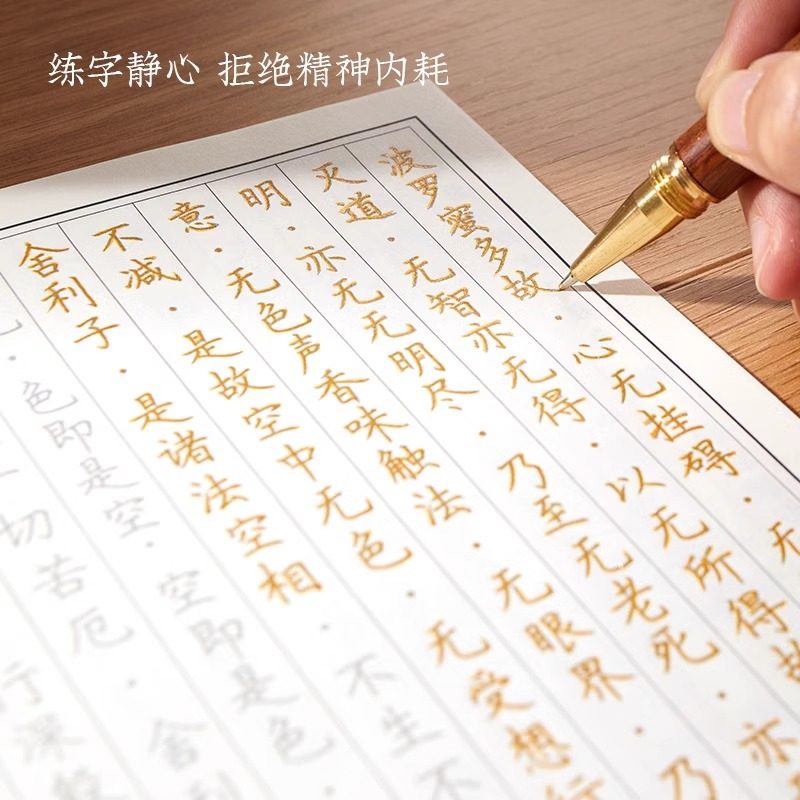 练字静心 拒绝精神内耗
行深般
切苦厄·舍利
·色即是空·空即是色·
舍利子·是诸法空相·不生不
不减·是故空中无色·无受想行
意·无色声香味触法·无眼界·乃
明·亦无无明尽·乃至无老死·亦
灭道·无智亦无得·以无所得故
波罗蜜多故·心无挂碍·无